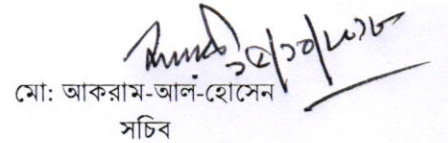 ২৫/১০/২০১৮
মো: আকরাম-আল-হোসেন
সচিব